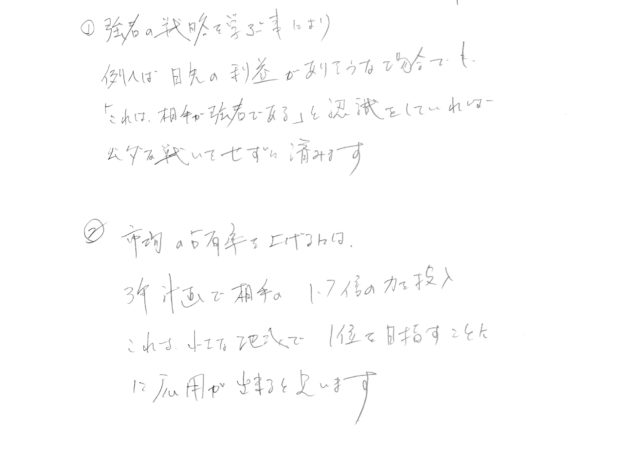 ① 強者の戦略を学ぶ事により
例えば 目先の利益がありそうな場合でも、
「これは、相手が強者である」と認識をしていれば
ムダな戦いをせずに済みます
② 市場の占有率を上げるには、
3年計画で相手の 1.7倍の力を投入
これは、小さな地域で 1位を目指すことに
に応用が出来ると思います